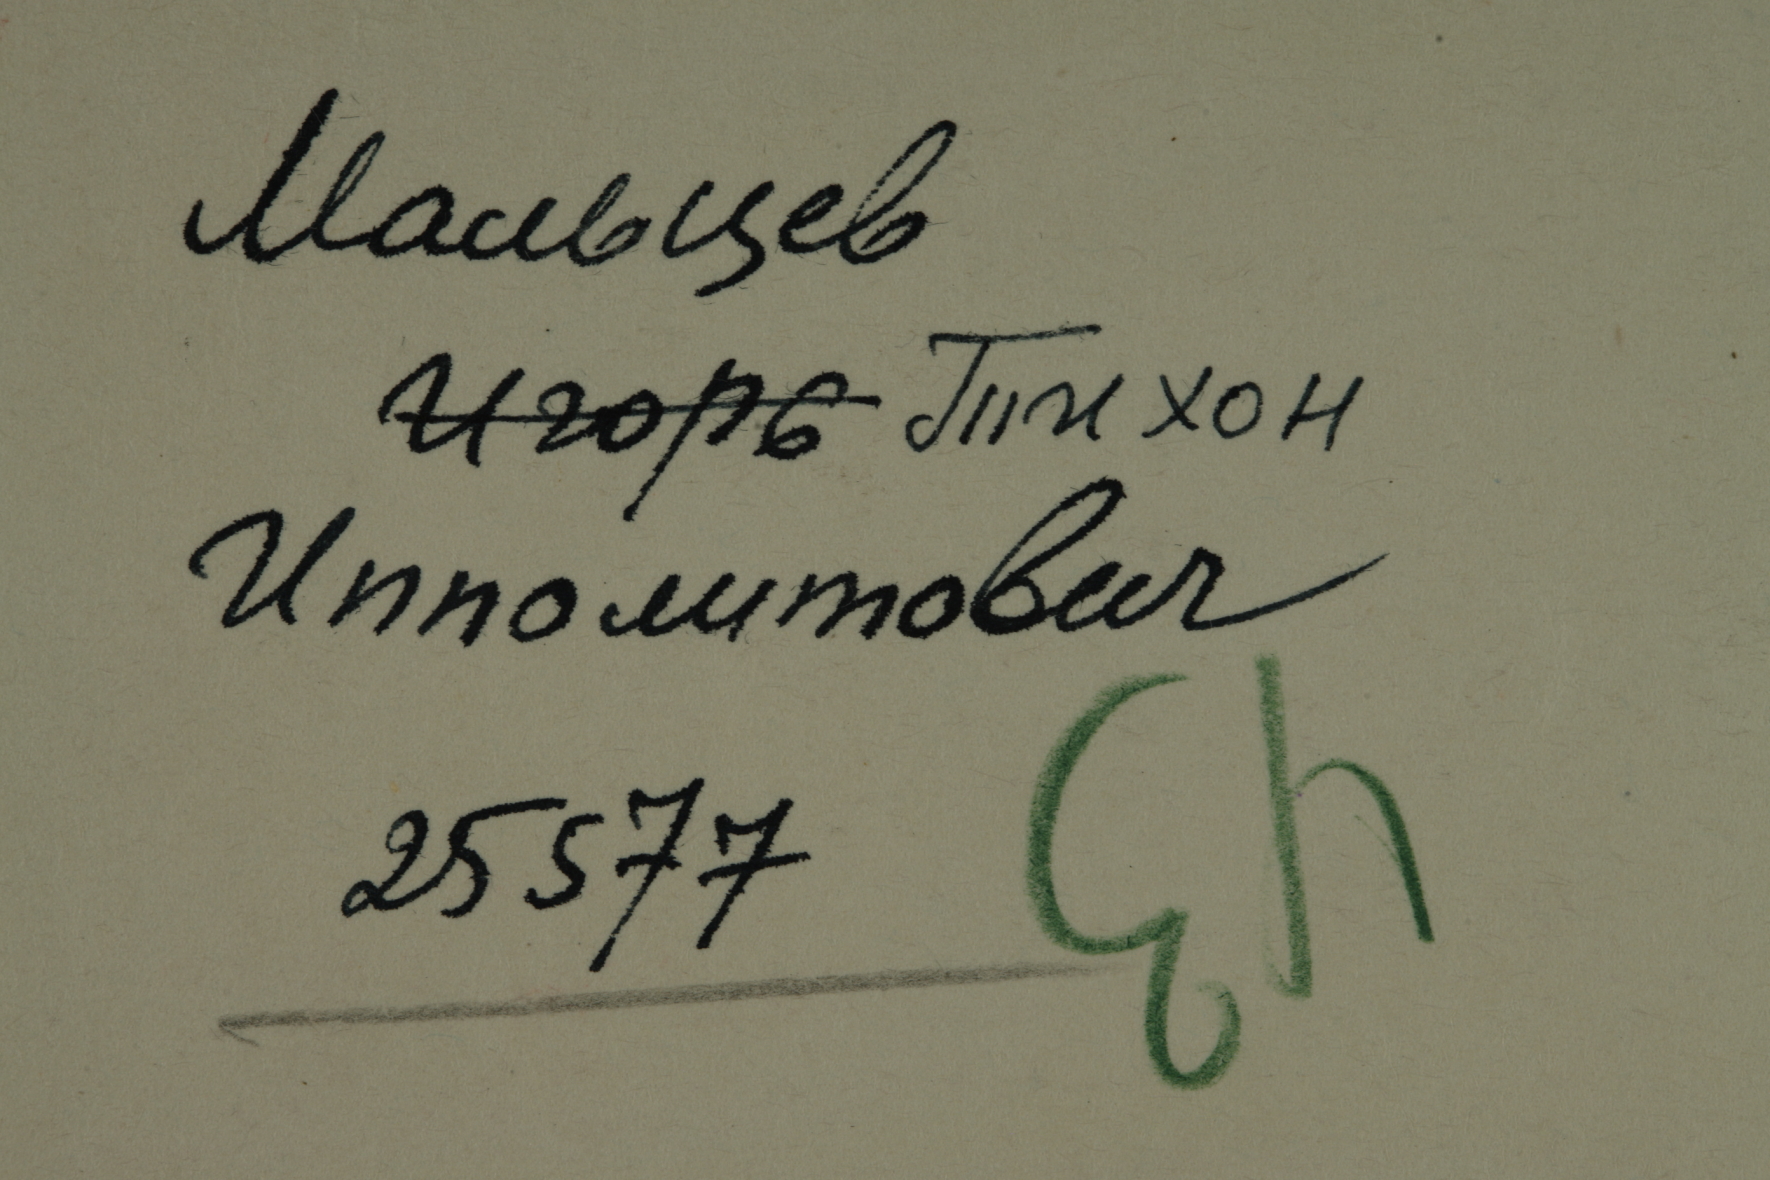 Мальцев
Игорь Тихон
Ипполитович
25577